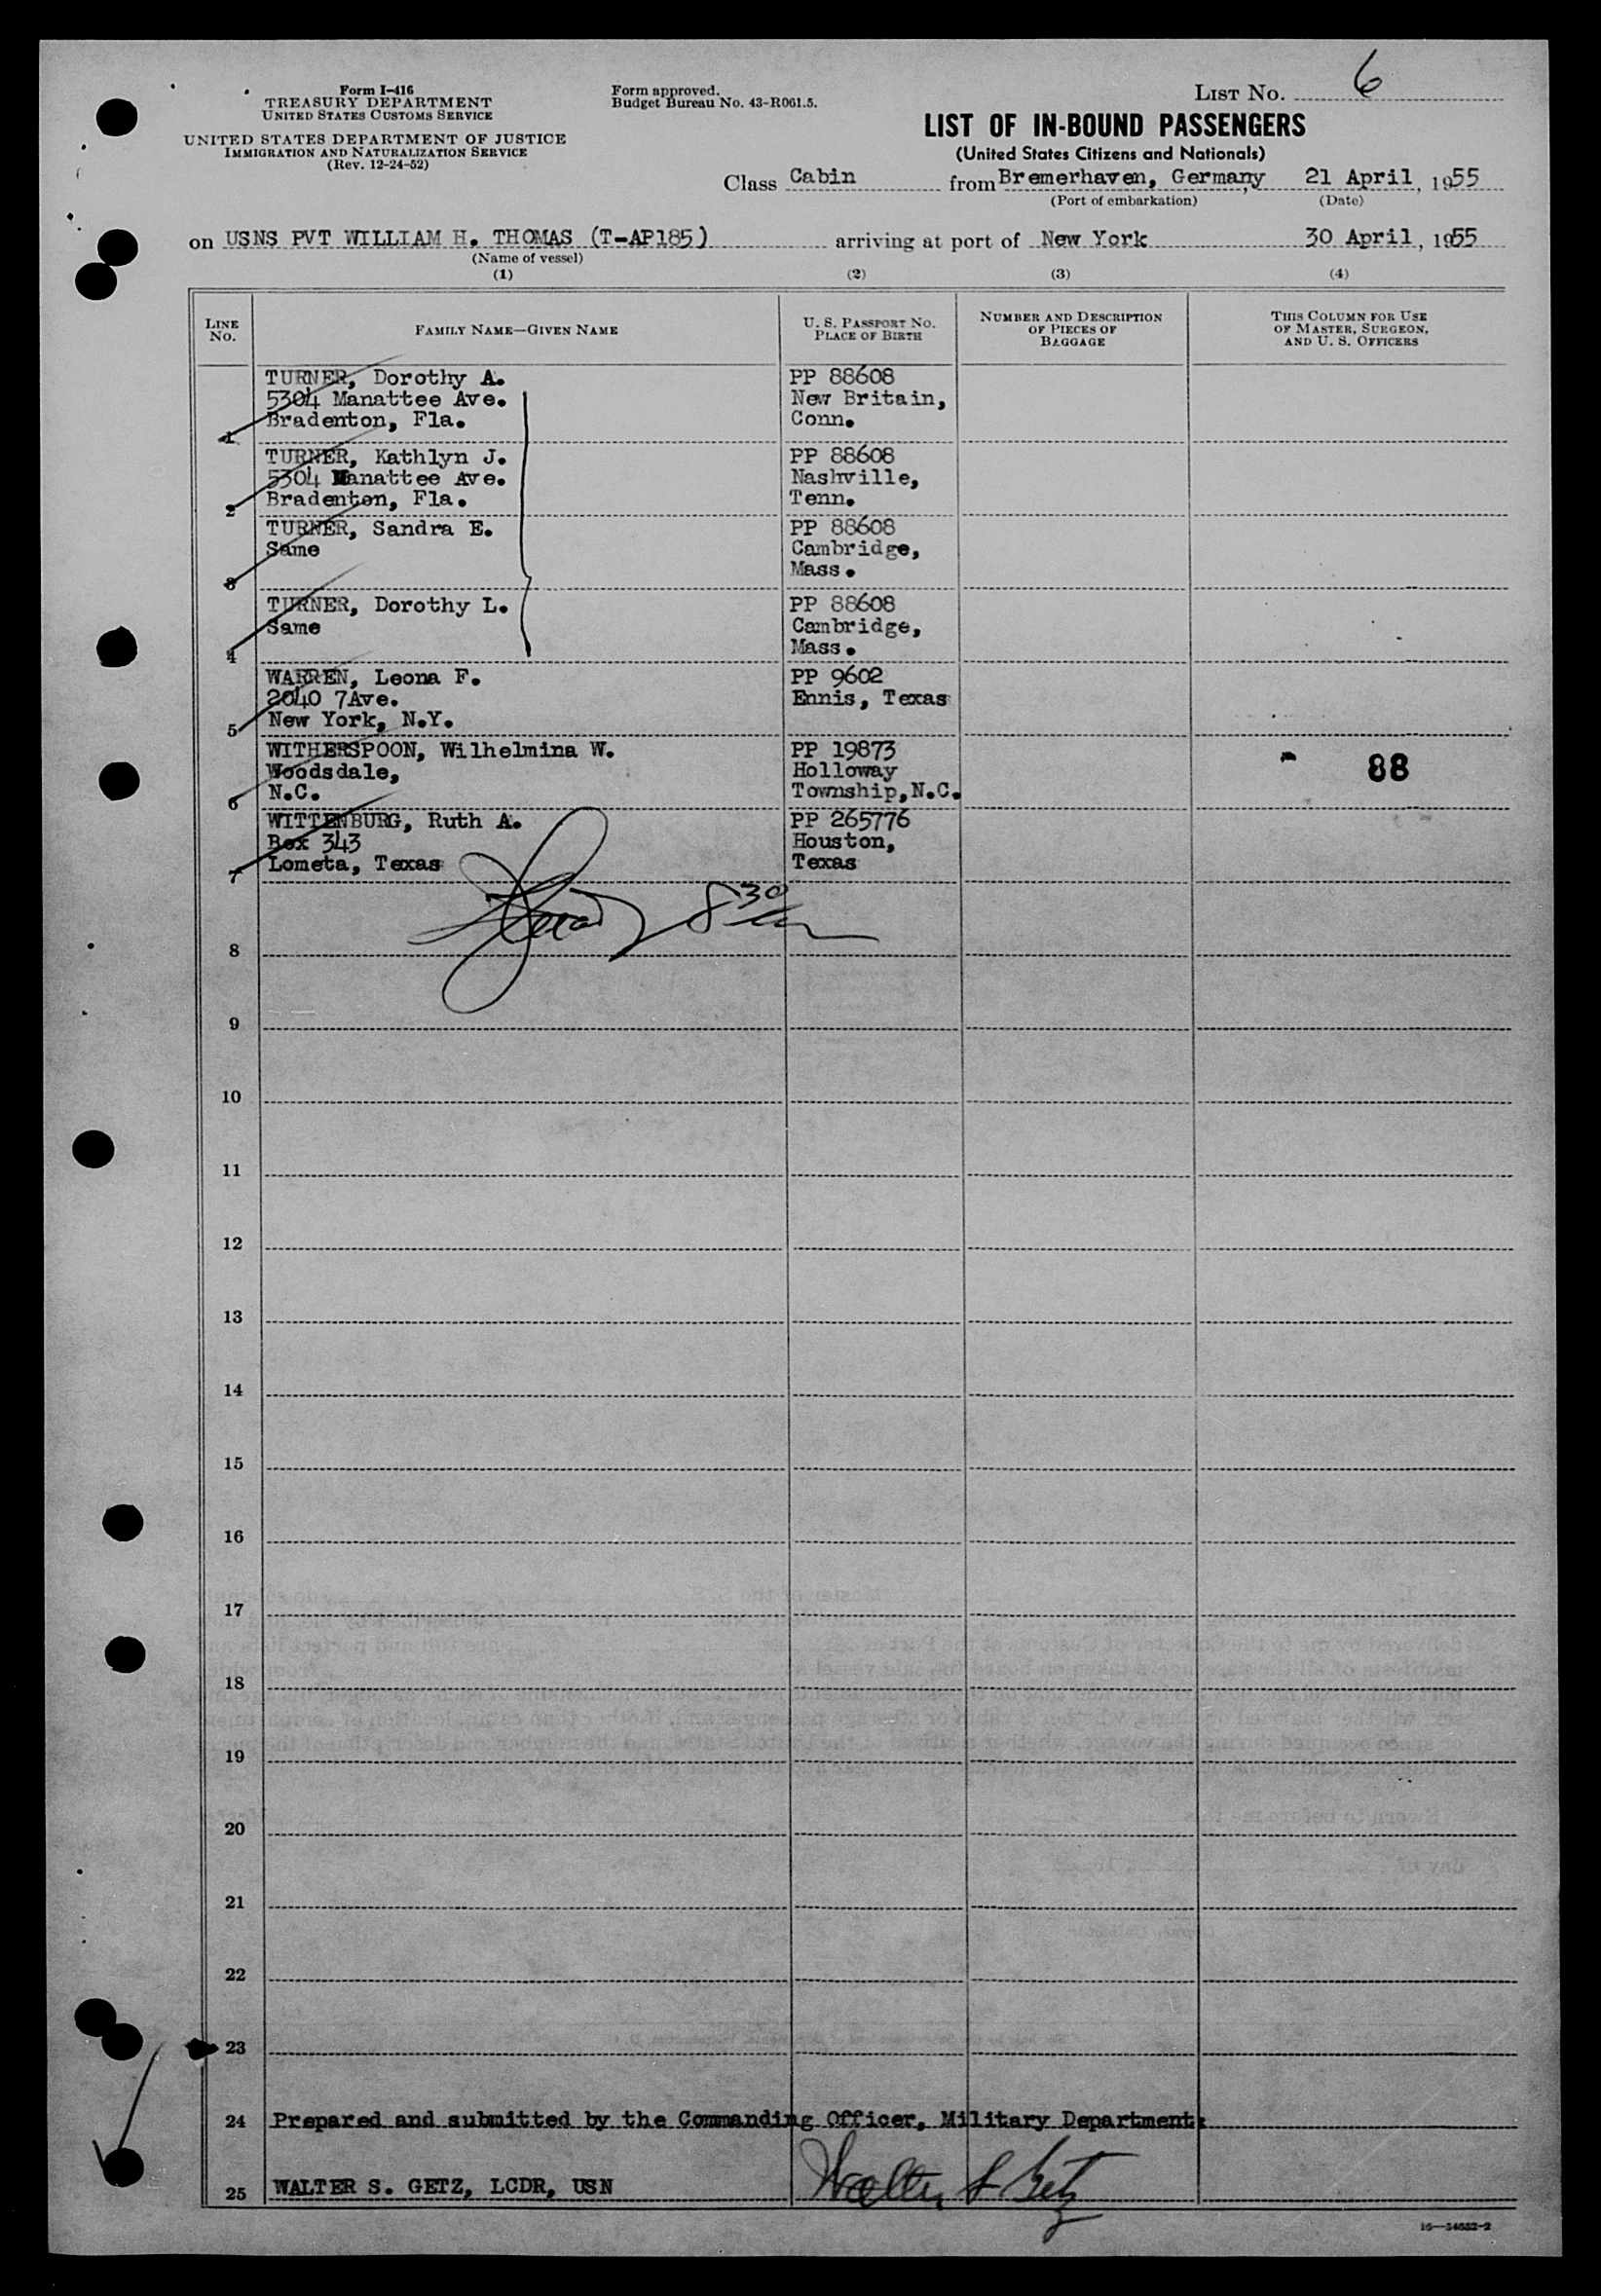 Form I-416
TREASURY DEPARTMENT
UNITED STATES CUSTOMS SERVICE
UNITED STATES DEPARTMENT OF JUSTICE
IMMIGRATION AND NATURALIZATION SERVICE
(Rev. 12-24-52)
Form approved.
Budget Bureau No. 43-R061.5.
LIST NO. 6
LIST OF IN-BOUND PASSENGERS
(United States Citizens and Nationals)
Class Cabin from Bremerhaven, Germany, 21 April, 1955
(Port of embarkation) (Date)
on USNS PVT WILLIAM H. THOMAS (T-AP185) arriving at port of New York 30 April, 1955
(Name of vessel)
(1) (2) (3) (4)
LINE NO.
FAMILY NAME—GIVEN NAME
U. S. PASSPORT NO.
PLACE OF BIRTH
NUMBER AND DESCRIPTION
OF PIECES OF
BAGGAGE
THIS COLUMN FOR USE
OF MASTER, SURGEON,
AND U. S. OFFICERS
TURNER, Dorothy A. PP 88608
5304 Manattee Ave. New Britain,
1 Bradenton, Fla. Conn.
TURNER, Kathlyn J. PP 88608
5304 Manattee Ave. Nashville,
2 Bradenton, Fla. Tenn.
TURNER, Sandra E. PP 88608
Same Cambridge,
3 Mass.
TURNER, Dorothy L. PP 88608
Same Cambridge,
4 Mass.
WARREN, Leona F. PP 9602
2040 7Ave. Ennis, Texas
5 New York, N.Y.
WITHERSPOON, Wilhelmina W. PP 19873
Woodsdale, Holloway 88
6 N.C. Township, N.C.
WITTENBURG, Ruth A. PP 265776
Box 343 Houston,
7 Lometa, Texas Texas
830
8
9
10
11
12
13
14
15
16
17
18
19
20
21
22
23
24 Prepared and submitted by the Commanding Officer, Military Department:
25 WALTER S. GETZ, LCDR, USN Walter S Getz